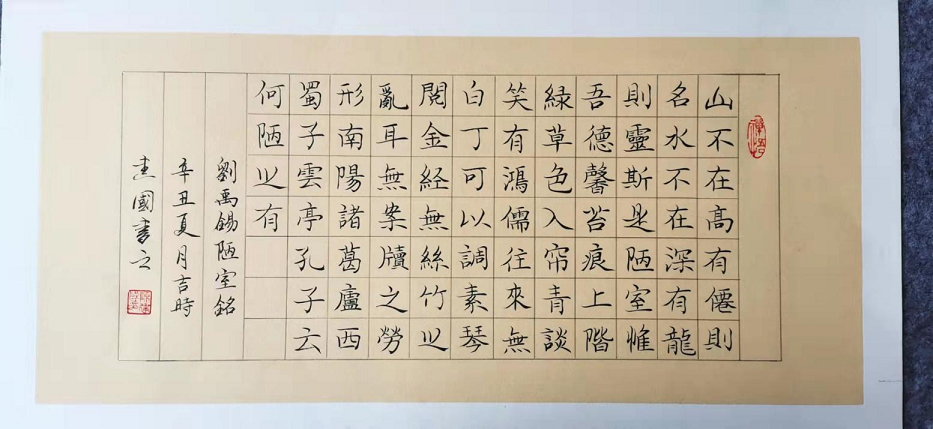 山不在高有僊則
名水不在深有龍
則靈斯是陋室惟
吾德馨苔痕上階
緑草色入帘青談
笑有鴻儒往來無
白丁可以調素琴
閲金経無絲竹之
亂耳無案牘之勞
形南陽諸葛廬西
蜀子雲亭孔子云
何陋之有
劉禹錫陋室銘
辛丑夏月吉時
國書之